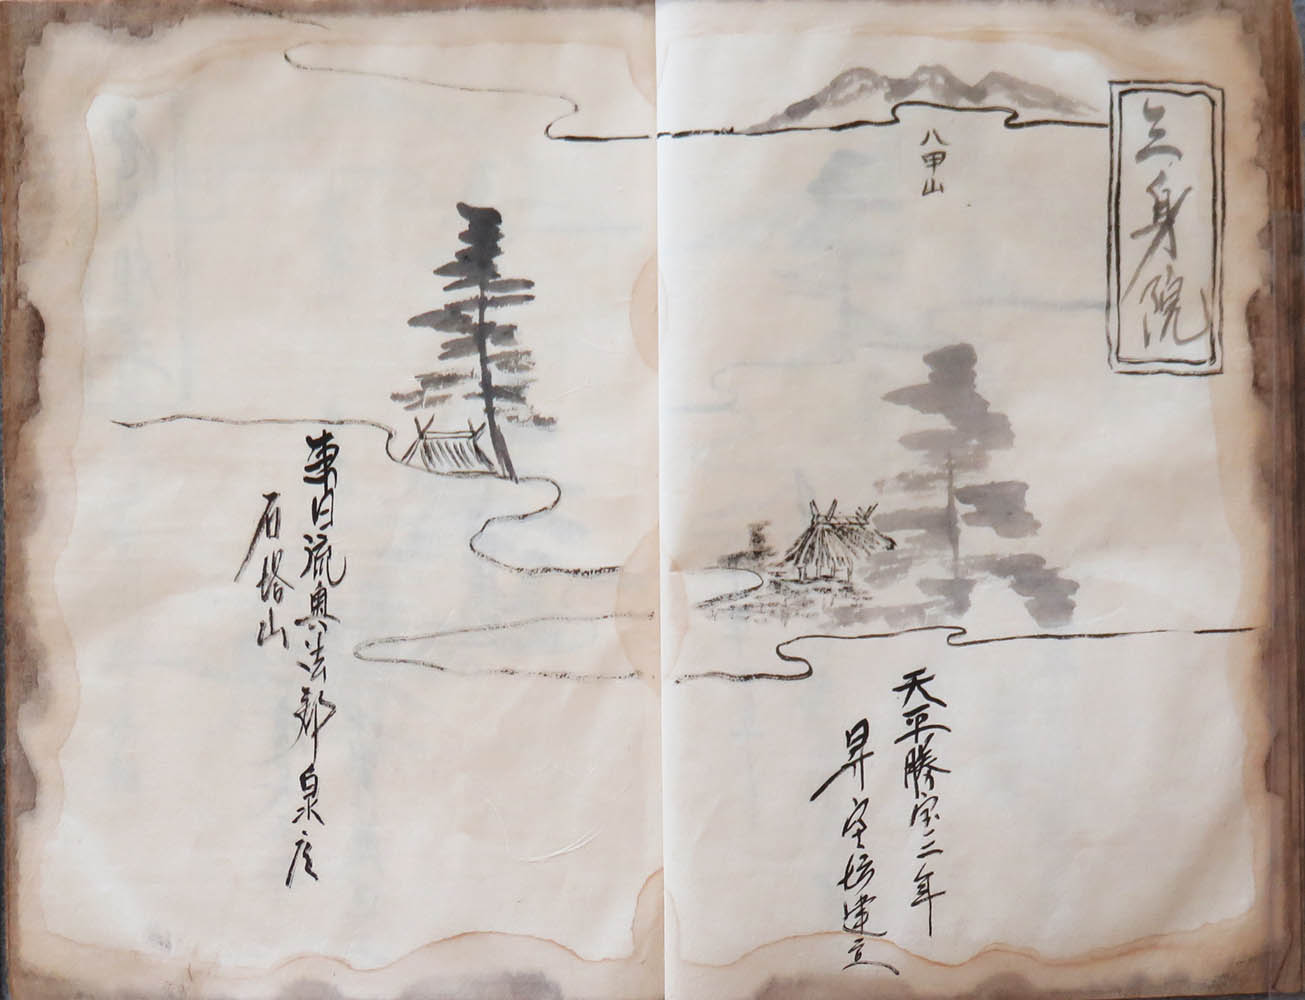 三身院
八甲山
天平勝宝二年
建立
東日流奥法郡泉
石塔山